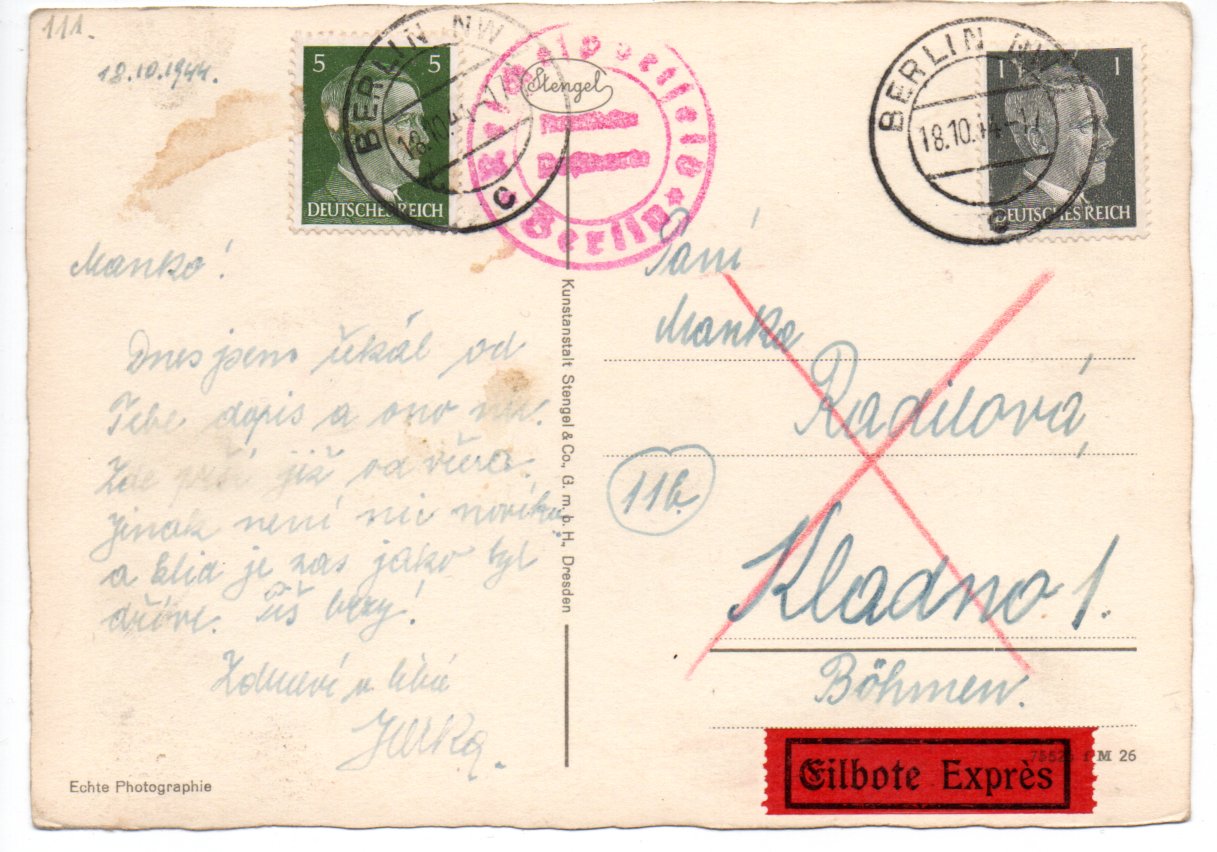 111.
18.10.1944.
5 5
DEUTSCHES REICH
BERLIN NW
18.10.44
c
Stengel
Berlin
BERLIN NW
18.10.44-17
c
1 1
DEUTSCHES REICH
Manko!
Dnes jsem čekal od
Tebe dopis a ono nic.
Zde prší již od včera.
Jinak není nic nového
a klid je zas jako byl
dříve. Piš brzy!
Zdraví a líbá
Jarka.
Echte Photographie
Kunstanstalt Stengel & Co., G. m. b. H., Dresden
Paní
Manka
Radilová
11b
Kladno 1.
Böhmen.
M 26
Eilbote Exprès